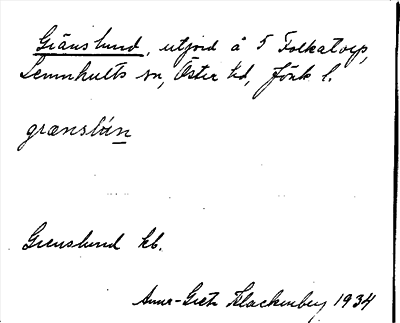 Gränslund, utjord å 5 Folkatorp,
Lemnhults sn, Östra hd, Jönk l.
grænslún
Grenslund kb.
Anna-Greta Klackenberg 1934